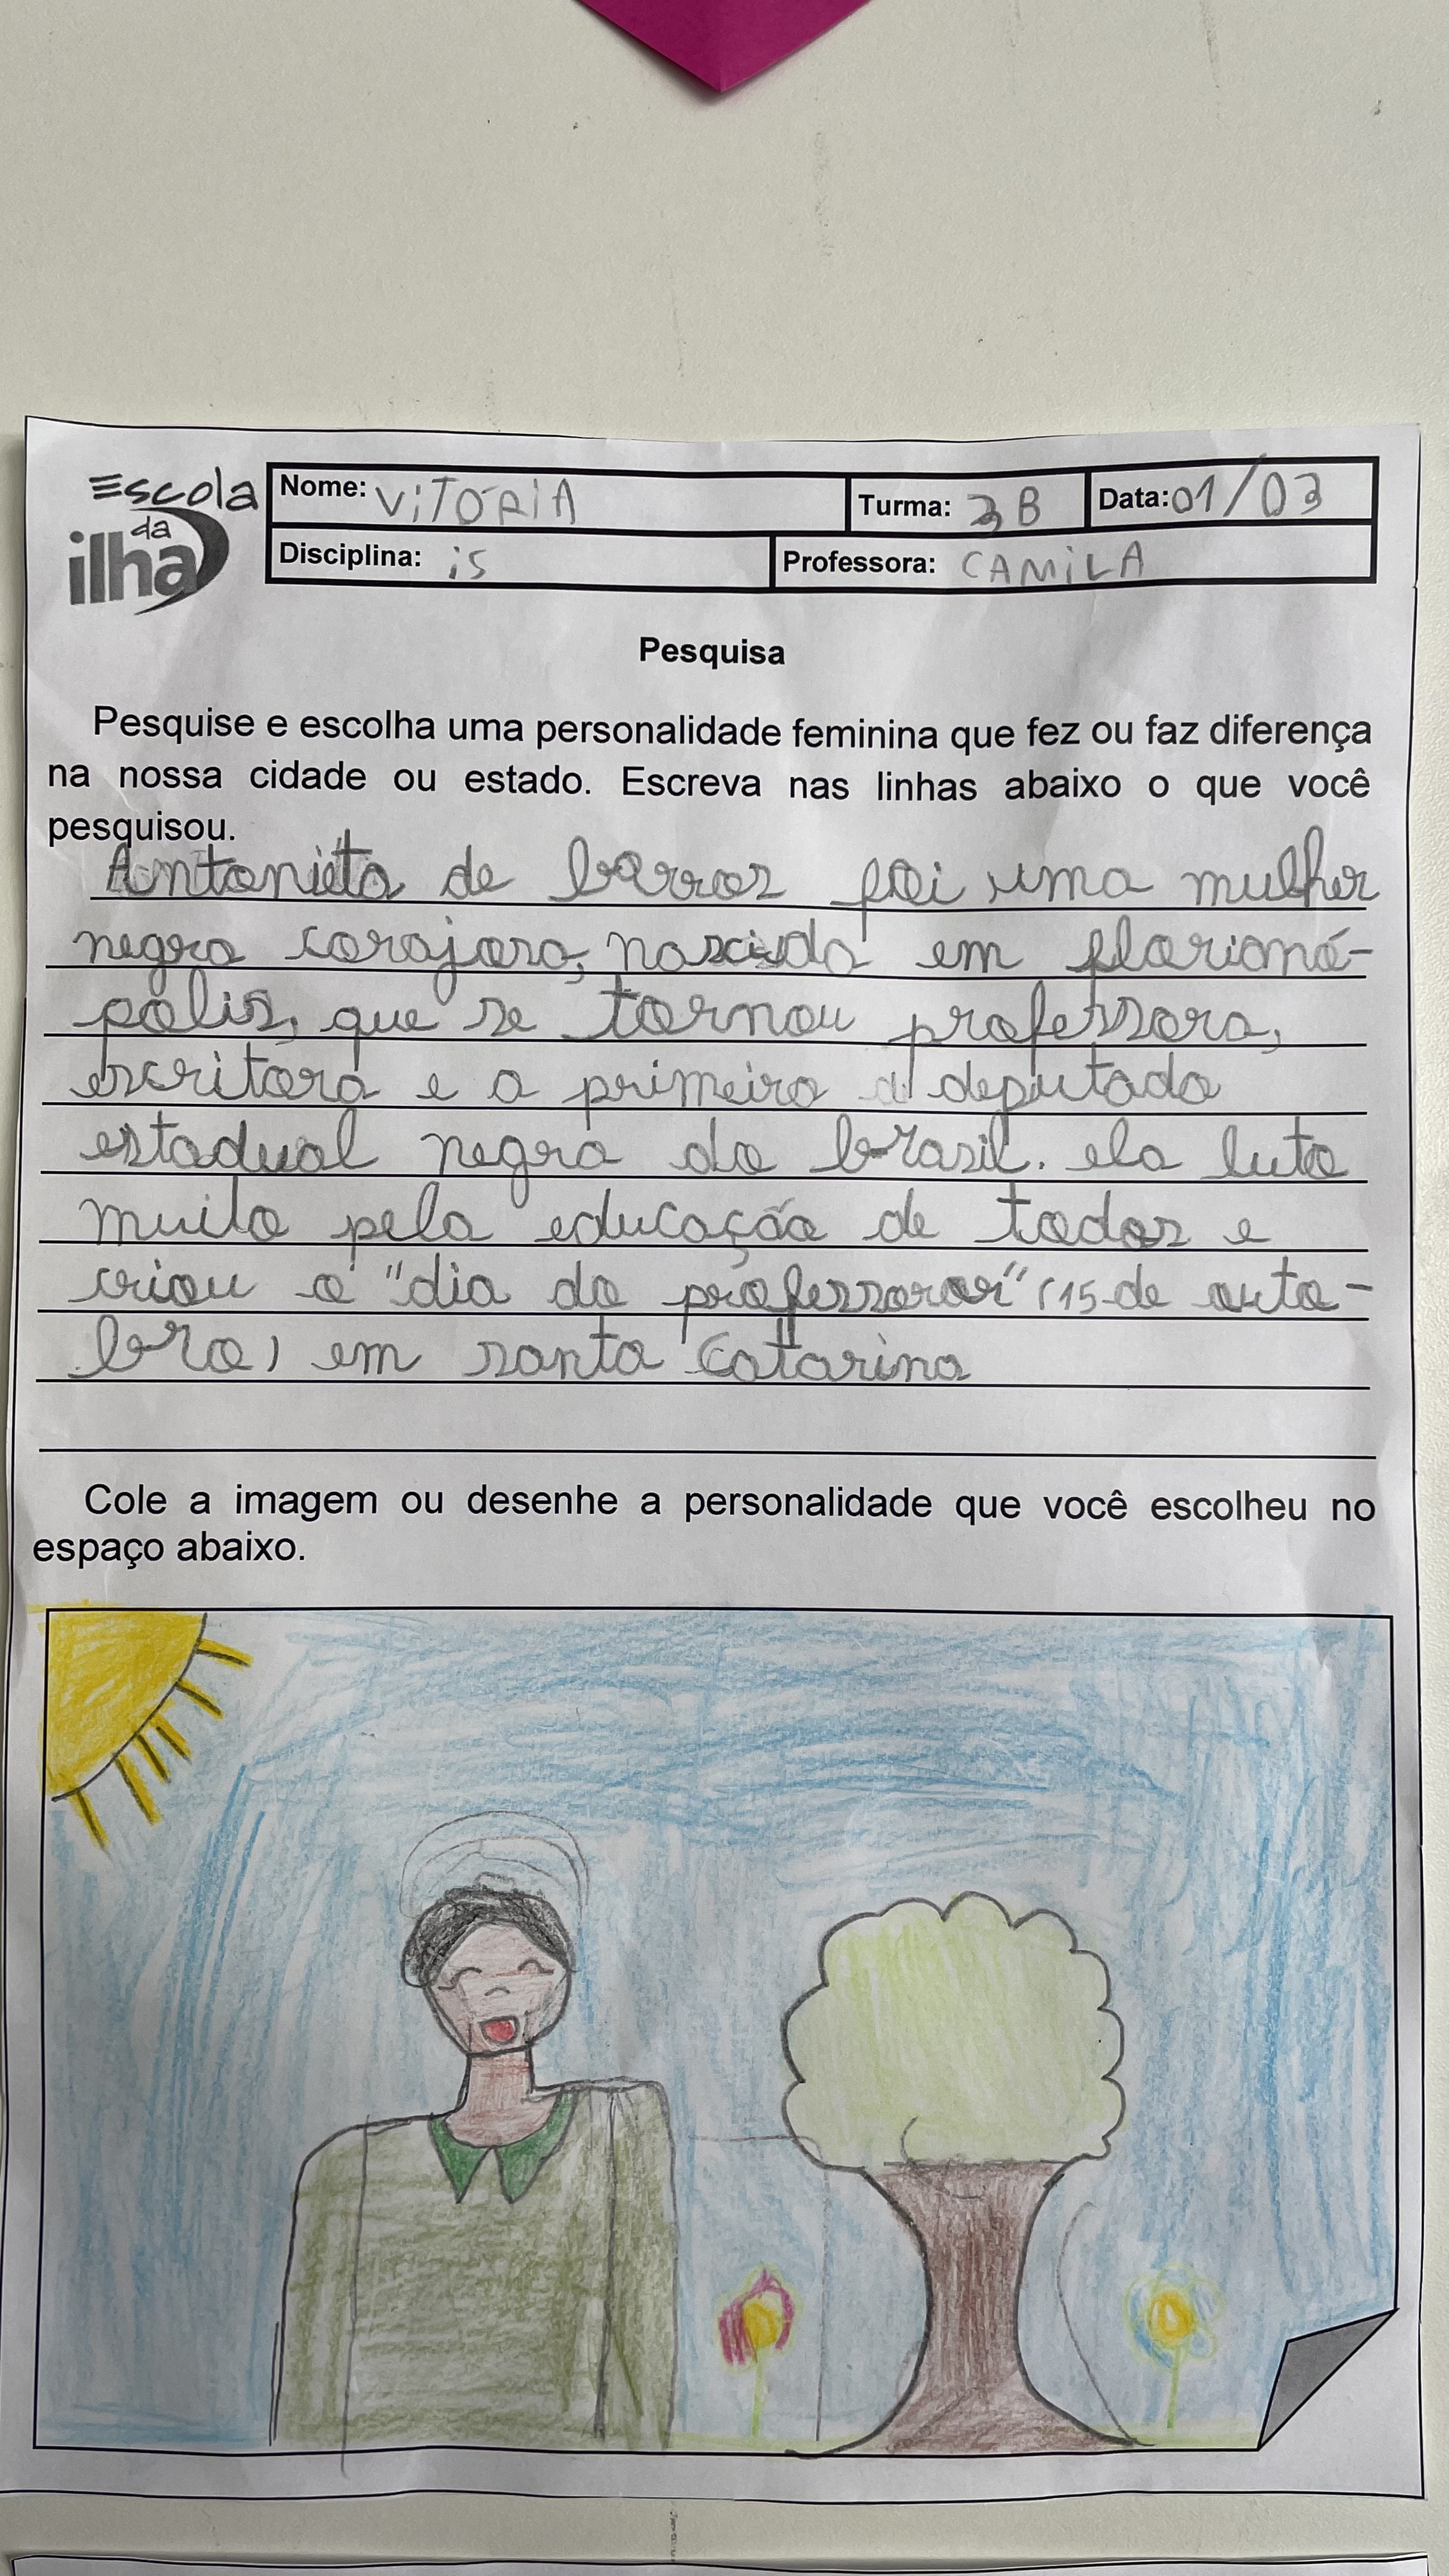 Escola
da
ilha
Nome: ViTÓRiA
Turma: 3 B
Data: 01/03
Disciplina: is
Professora: CAMiLA
Pesquisa
Pesquise e escolha uma personalidade feminina que fez ou faz diferença
na nossa cidade ou estado. Escreva nas linhas abaixo o que você
pesquisou.
Antonieta de barros foi uma mulher
negra corajosa, nascida em florianó-
polis, que se tornou professora,
escritora e a primeira deputada
estadual negra do brasil. ela luto
muito pela educação de todos e
criou o "dia do professoror" (15 de outo-
bro) em santa Catarina
Cole a imagem ou desenhe a personalidade que você escolheu no
espaço abaixo.